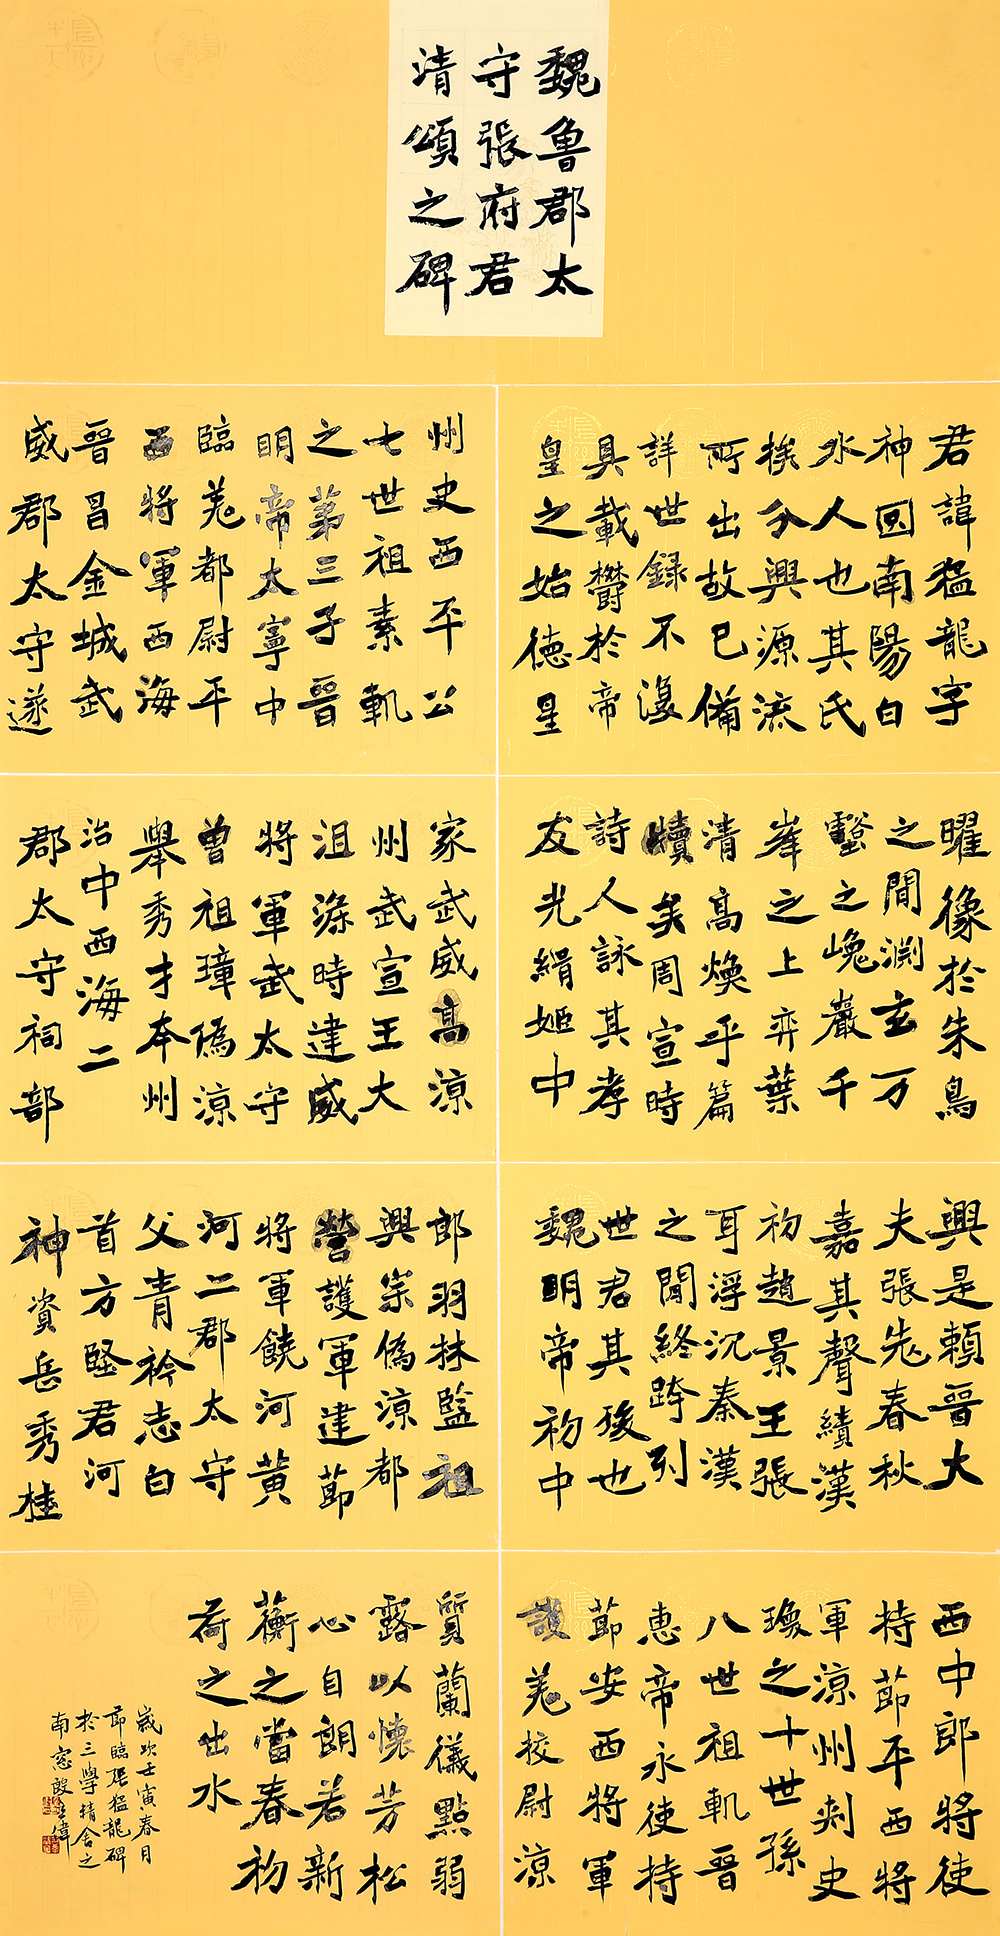 魏魯郡太
守張府君
清頌之碑
君諱猛龍字
神囧南陽白
水人也其氏
挨分興源流
所出故已備
詳世錄不復
具載欝於帝
皇之始德星
曜像於朱鳥
之間淵玄万
壑之巉巖千
峯之上弈葉
清高煥乎篇
牘矣周宣時
詩人詠其孝
友光緝姬中
興是賴晉大
夫張老春秋
嘉其聲績漢
初趙景王張
耳浮沉秦漢
之間終跨列
世君其後也
魏明帝初中
西中郎將使
持節平西將
軍涼州刺史
瓊之十世孫
八世祖軌晉
惠帝永使持
節安西將軍
護羌校尉涼
州史西平公
七世祖素軌
之第三子晉
明帝太寧中
臨羌都尉平
西將軍西海
晉昌金城武
威郡太守遂
家武威高涼
州武宣王大
沮渠時建威
將軍武太守
曾祖璋偽涼
舉秀才本州
治中西海二
郡太守祠部
郎羽林監祖
興宗偽涼都
營護軍建節
將軍饒河黃
河二郡太守
父青衿志白
首方堅君河
神資岳秀桂
質蘭儀點弱
露以懷芳松
心自朗若新
蘅之當春初
荷之出水
歲次壬寅春月
節臨張猛龍碑
於三學精舍之
南窓